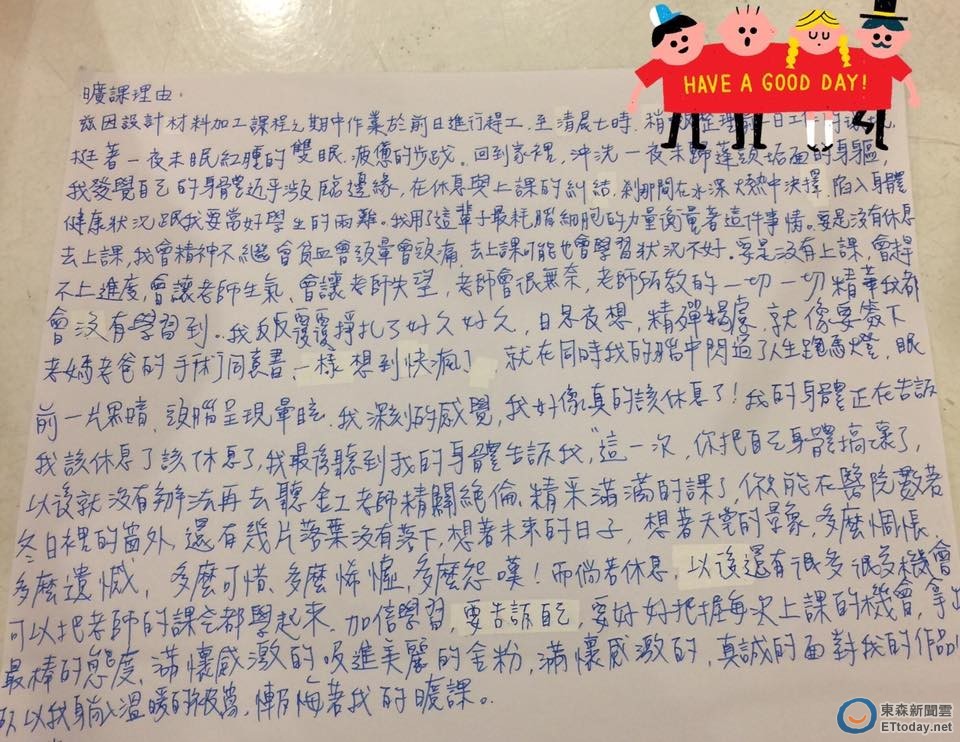 HAVE A GOOD DAY!
曠課理由:
茲因設計材料加工課程之期中作業於前日進行趕工,至清晨七時.稍
挺著一夜未眠紅腫的雙眼.疲憊的步伐。回到家裡,沖洗一夜未歸蓬頭垢面的身軀,
我發覺自己的身體近乎瀕臨邊緣,在休息與上課的糾結,剎那間在水深火熱中決擇,陷入身體
健康狀況跟我要當好學生的兩難。我用了這輩子最耗腦細胞的力量衡量著這件事情。要是沒有休息
去上課,我會精神不繼會貧血會頭暈會頭痛,去上課可能也會學習狀況不好。要是沒有上課,會趕
不上進度,會讓老師生氣,會讓老師失望,老師會很無奈,老師所教的一切一切精華我都
會沒有學習到。我反反覆覆掙扎了好久好久,日思夜想,精殫竭慮,就像要簽下
老媽老爸的手術同意書一樣想到快瘋了,就在同時我的腦中閃過了人生跑馬燈,眼
前一片黑暗,頭腦呈現暈眩.我深刻的感覺,我好像真的該休息了!我的身體正在告訴
我該休息了該休息了,我最後聽到我的身體告訴我,"這一次,你把自己身體搞壞了,
以後就沒有辦法再去聽金工老師精闢絕倫、精采滿滿的課了,你只能在醫院數著
冬日裡的窗外,還有幾片落葉沒有落下,想著未來的日子,想著天堂的景象,多麼惆悵,
多麼遺憾,多麼可惜、多麼怖懼,多麼怨嘆!而倘若休息,以後還有很多很多機會
可以把老師的課全都學起來.加倍學習,要告訴自己,要好好把握每次上課的機會,拿出
最棒的態度,滿懷感激的吸進美麗的金粉,滿懷感激的,真誠的面對我的作品
所以我躺入溫暖的被窩,懺悔著我的曠課。
東森新聞雲
ETtoday.net